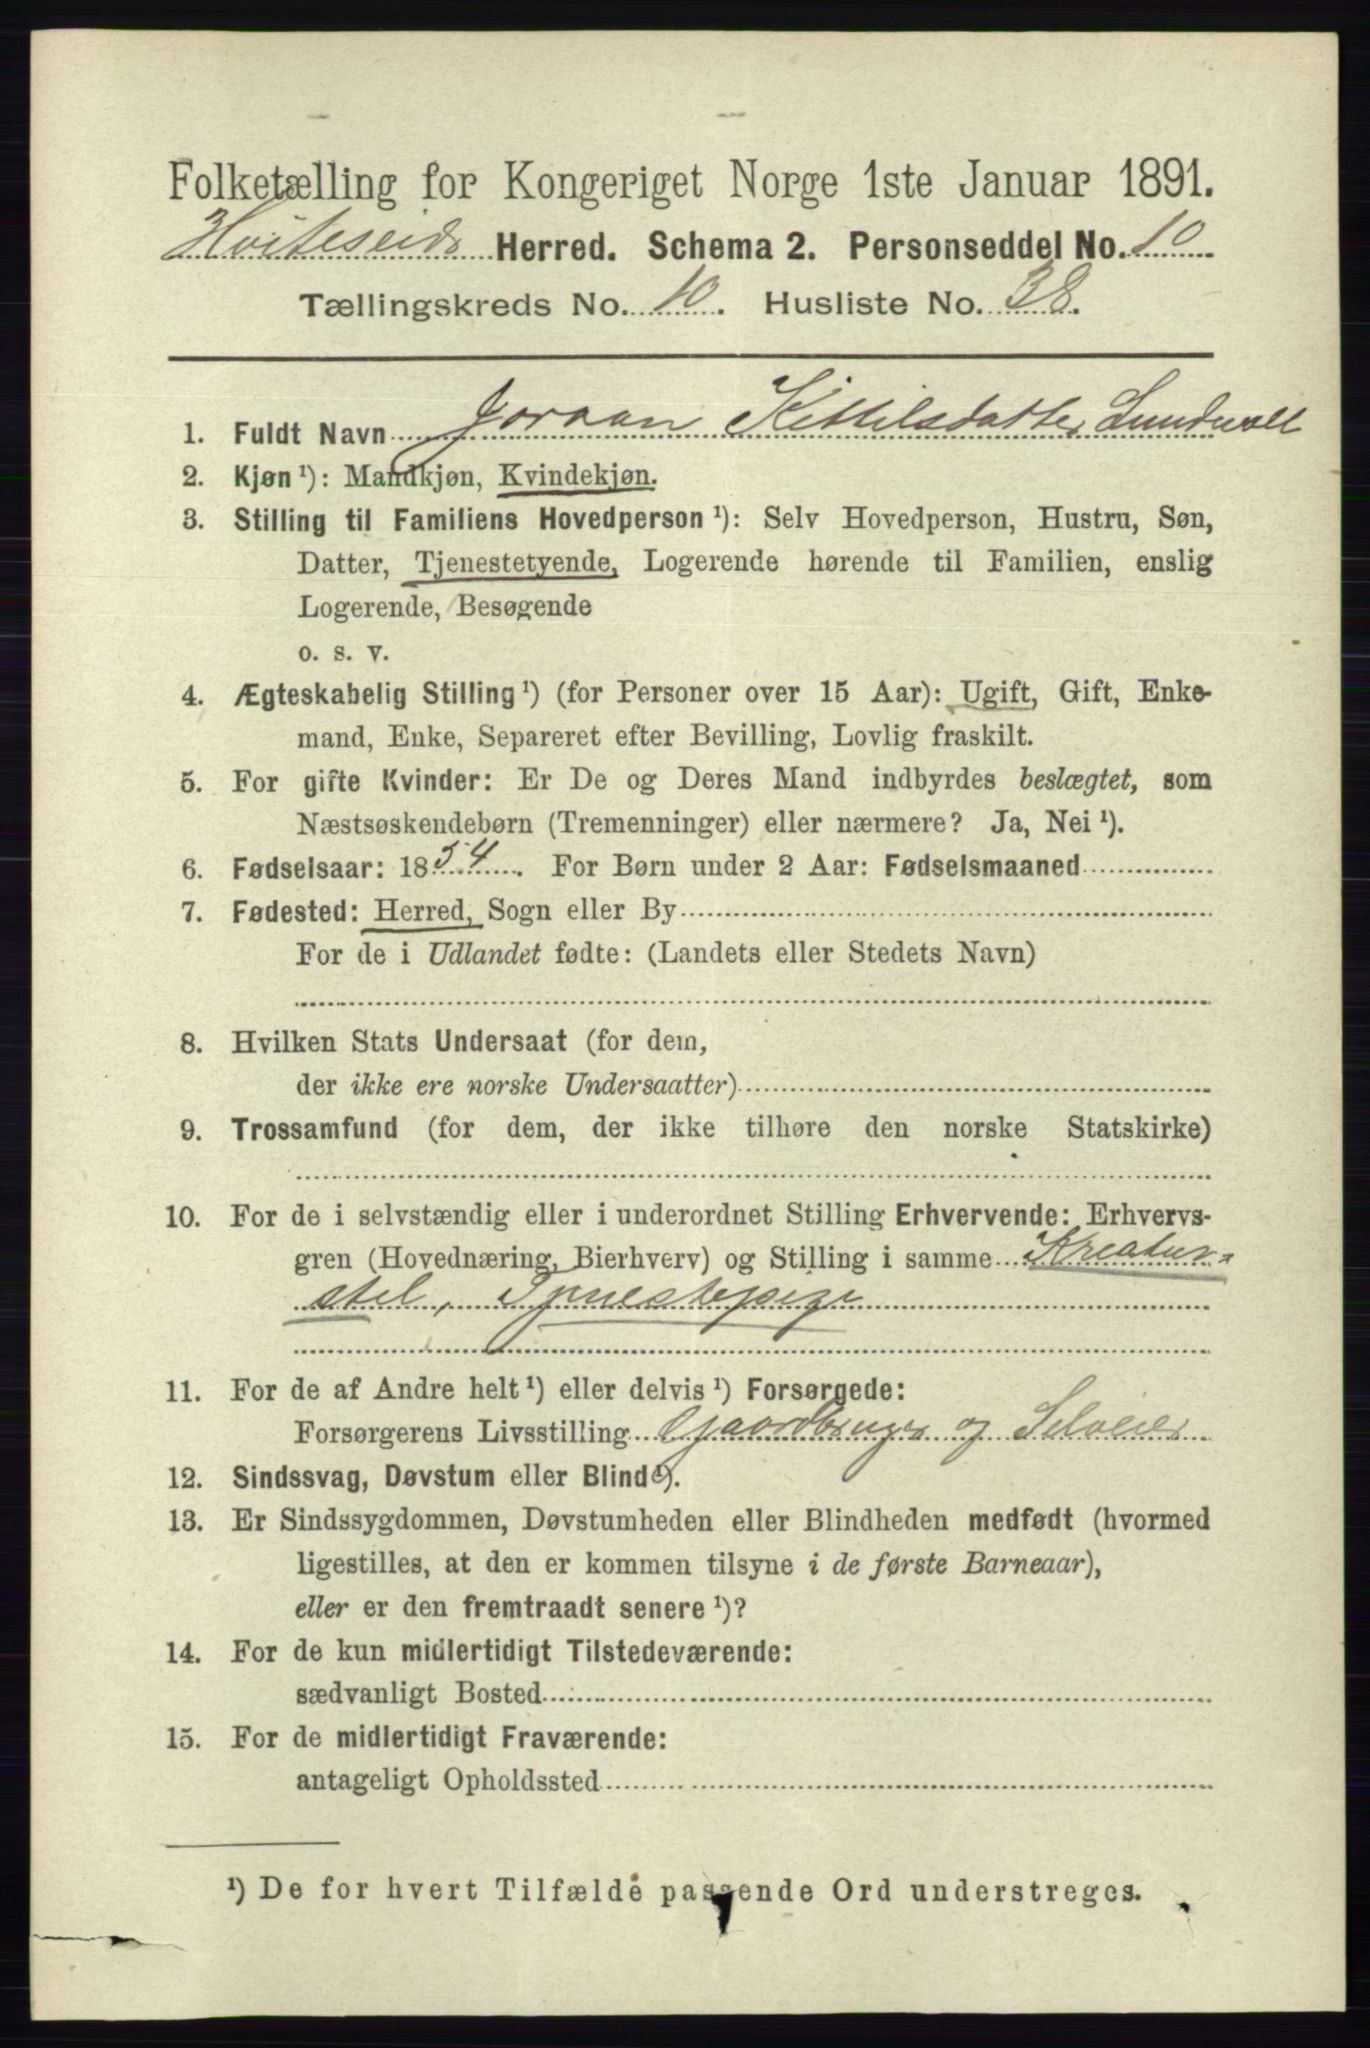 Folketælling for Kongeriget Norge 1ste Januar 1891.
Hviteseid Herred. Schema 2. Personseddel No. 10
Tællingskreds No. 10. Husliste No. 38.
1. Fuldt Navn Joraan Kittilsdatter Lundvall
2. Kjøn ¹): Mandkjøn, Kvindekjøn.
3. Stilling til Familiens Hovedperson ¹): Selv Hovedperson, Hustru, Søn,
Datter, Tjenestetyende, Logerende hørende til Familien, enslig
Logerende, Besøgende
o. s. v.
4. Ægteskabelig Stilling ¹) (for Personer over 15 Aar): Ugift, Gift, Enke-
mand, Enke, Separeret efter Bevilling, Lovlig fraskilt.
5. For gifte Kvinder: Er De og Deres Mand indbyrdes beslægtet, som
Næstsøskendebørn (Tremenninger) eller nærmere? Ja, Nei ¹).
6. Fødselsaar: 1854. For Børn under 2 Aar: Fødselsmaaned
7. Fødested: Herred, Sogn eller By
For de i Udlandet fødte: (Landets eller Stedets Navn)
8. Hvilken Stats Undersaat (for dem,
der ikke ere norske Undersaatter)
9. Trossamfund (for dem, der ikke tilhøre den norske Statskirke)
10. For de i selvstændig eller i underordnet Stilling Erhvervende: Erhvervs-
gren (Hovednæring, Bierhverv) og Stilling i samme Kreatur-
stel, Tjenestepige
11. For de af Andre helt ¹) eller delvis ¹) Forsørgede:
Forsørgerens Livsstilling Gaardbruger og Selveier
12. Sindssvag, Døvstum eller Blind ¹).
13. Er Sindssygdommen, Døvstumheden eller Blindheden medfødt (hvormed
ligestilles, at den er kommen tilsyne i de første Barneaar),
eller er den fremtraadt senere ¹)?
14. For de kun midlertidigt Tilstedeværende:
sædvanligt Bosted
15. For de midlertidigt Fraværende:
antageligt Opholdssted
¹) De for hvert Tilfælde passende Ord understreges.